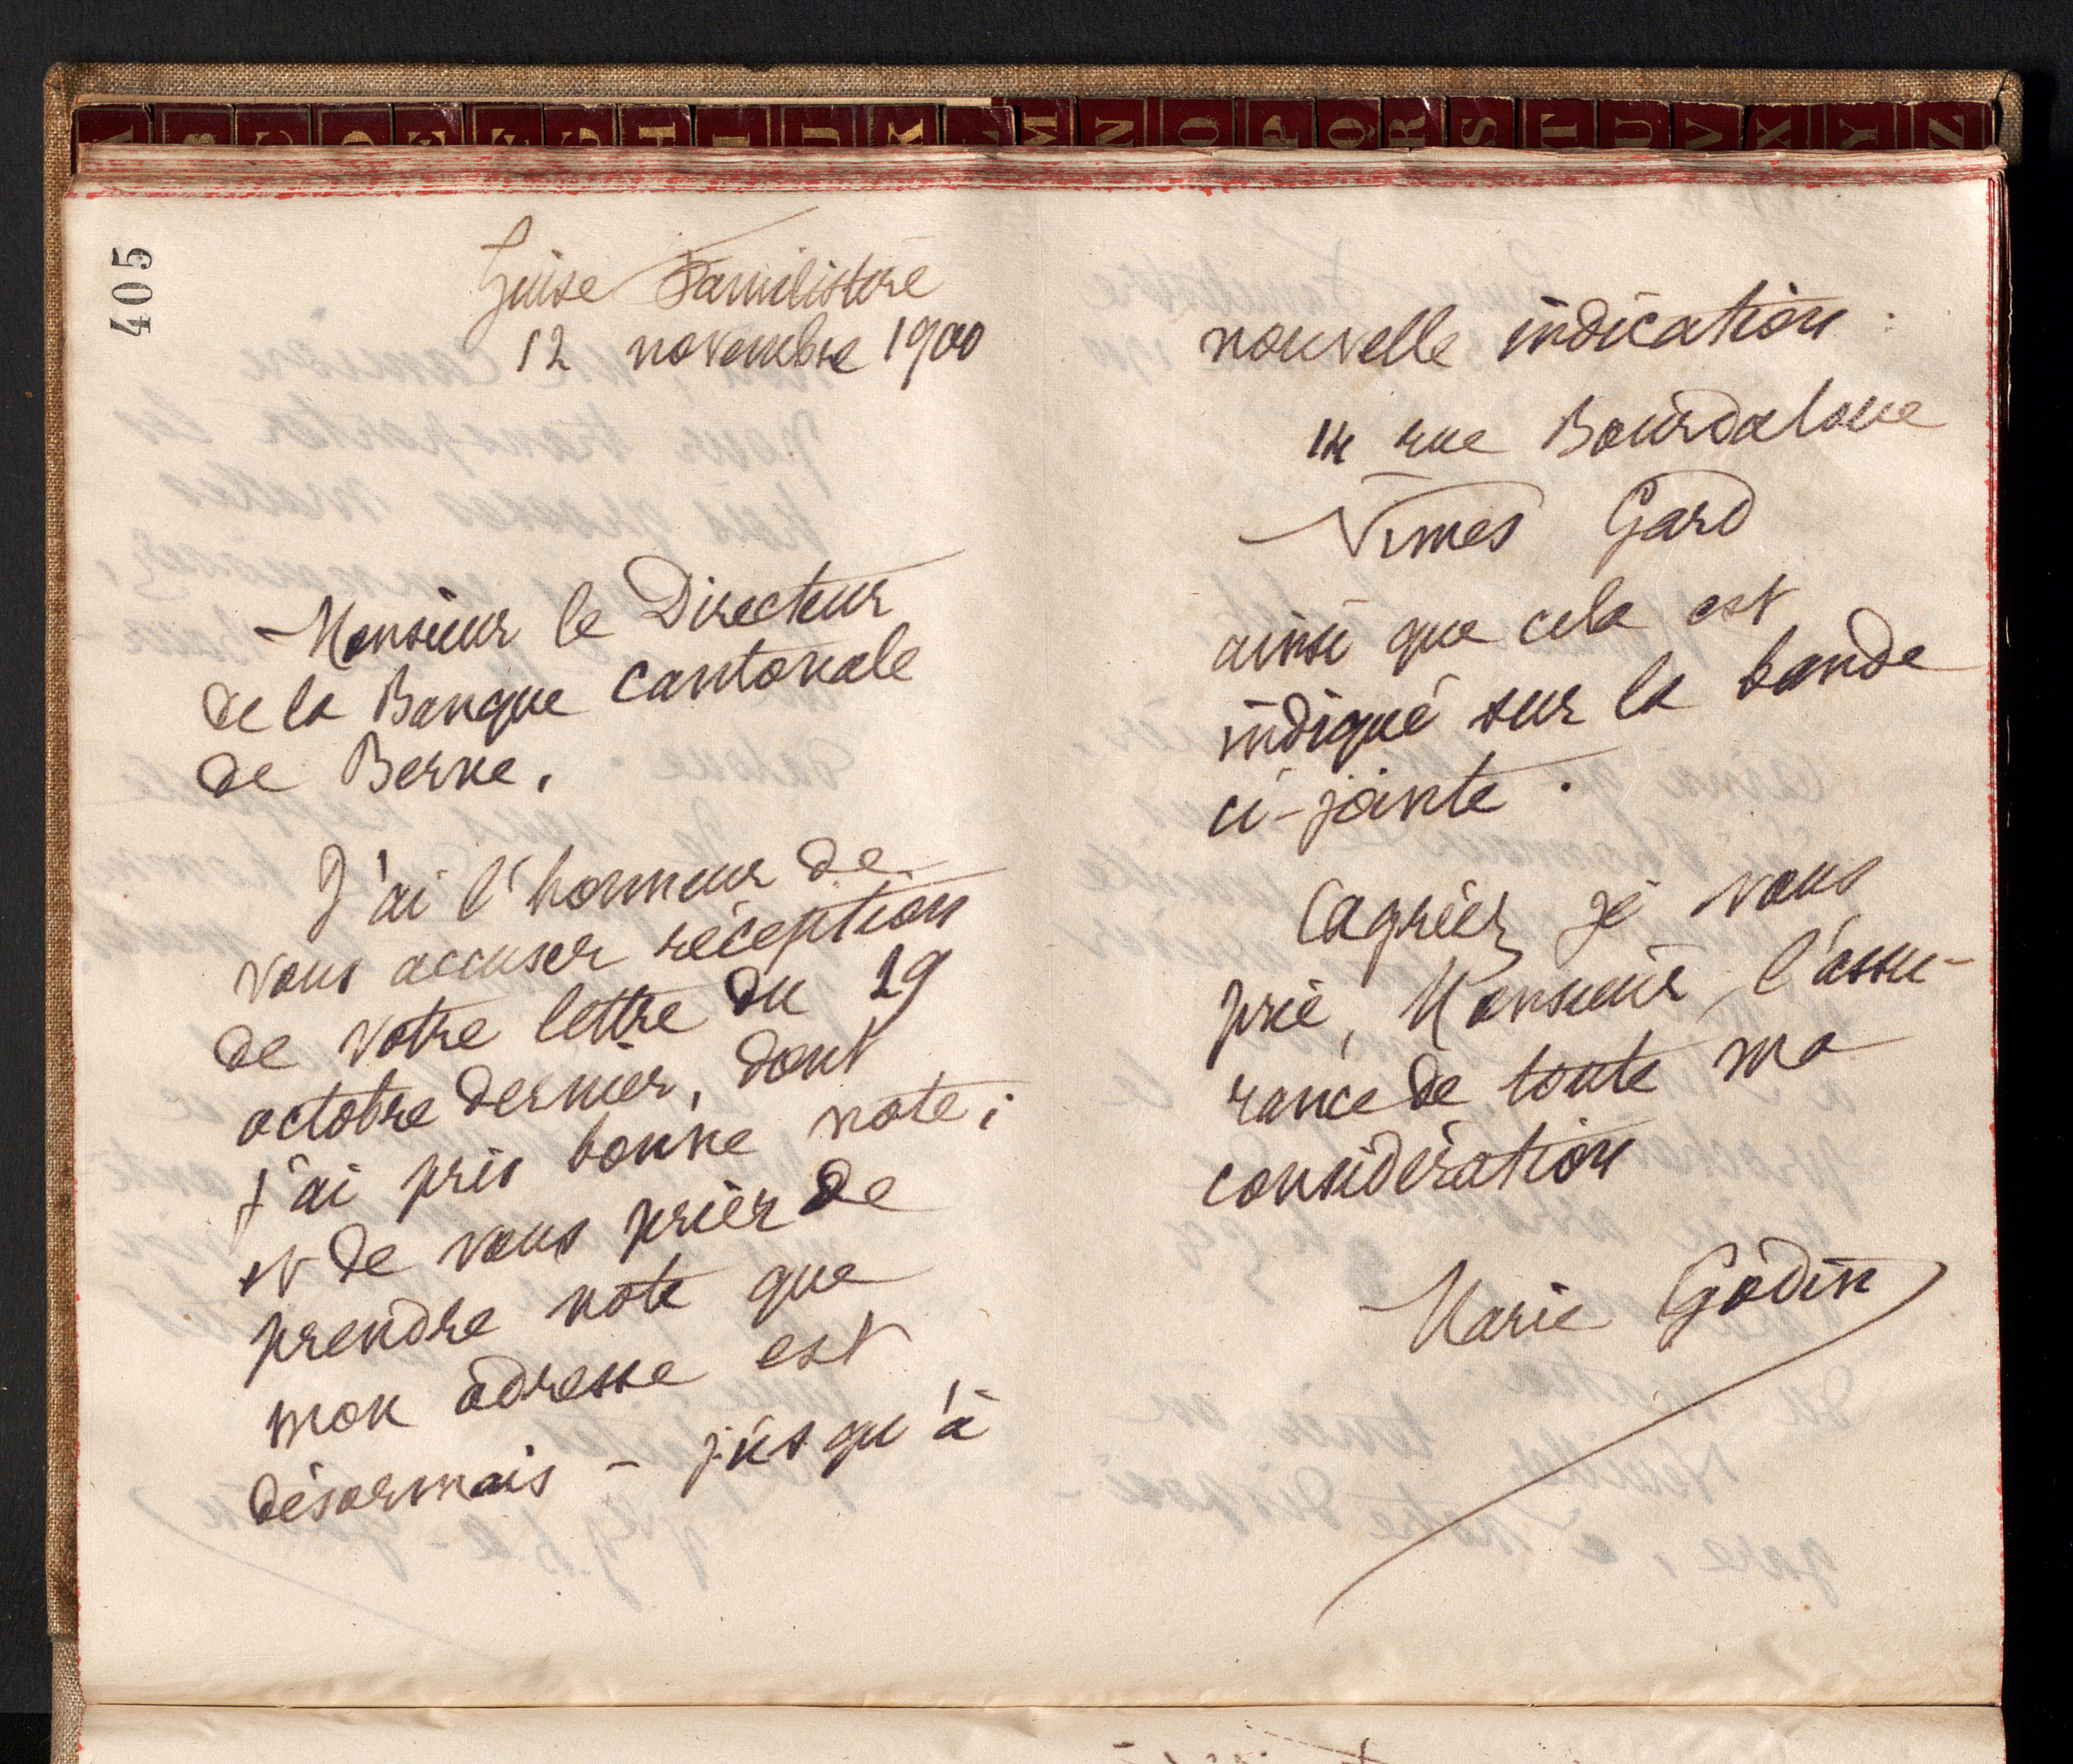 A B C D E F G H I J K L M N O P Q R S T U V X Y Z
405
Guise Familistère
12 novembre 1900
Monsieur le Directeur
de la Banque cantonale
de Berne.
J'ai l'honneur de
vous accuser réception
de votre lettre du 29
octobre dernier, dont
j'ai pris bonne note ;
et de vous prier de
prendre note que
mon adresse est
désormais - jusqu'à
nouvelle indication :
14 rue Bourdaloue
Nîmes Gard
ainsi que cela est
indiqué sur la bande
ci-jointe.
Agréez, je vous
prie, Monsieur, l'assu-
rance de toute ma
considération
Marie Godin